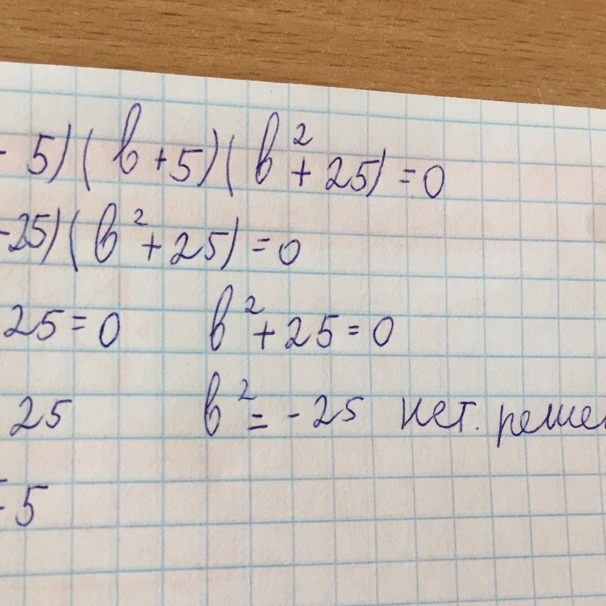 - 5)(b+5)(b²+25)=0
-25)(b²+25)=0
25=0 b²+25=0
25 b²=-25 нет. реше
5